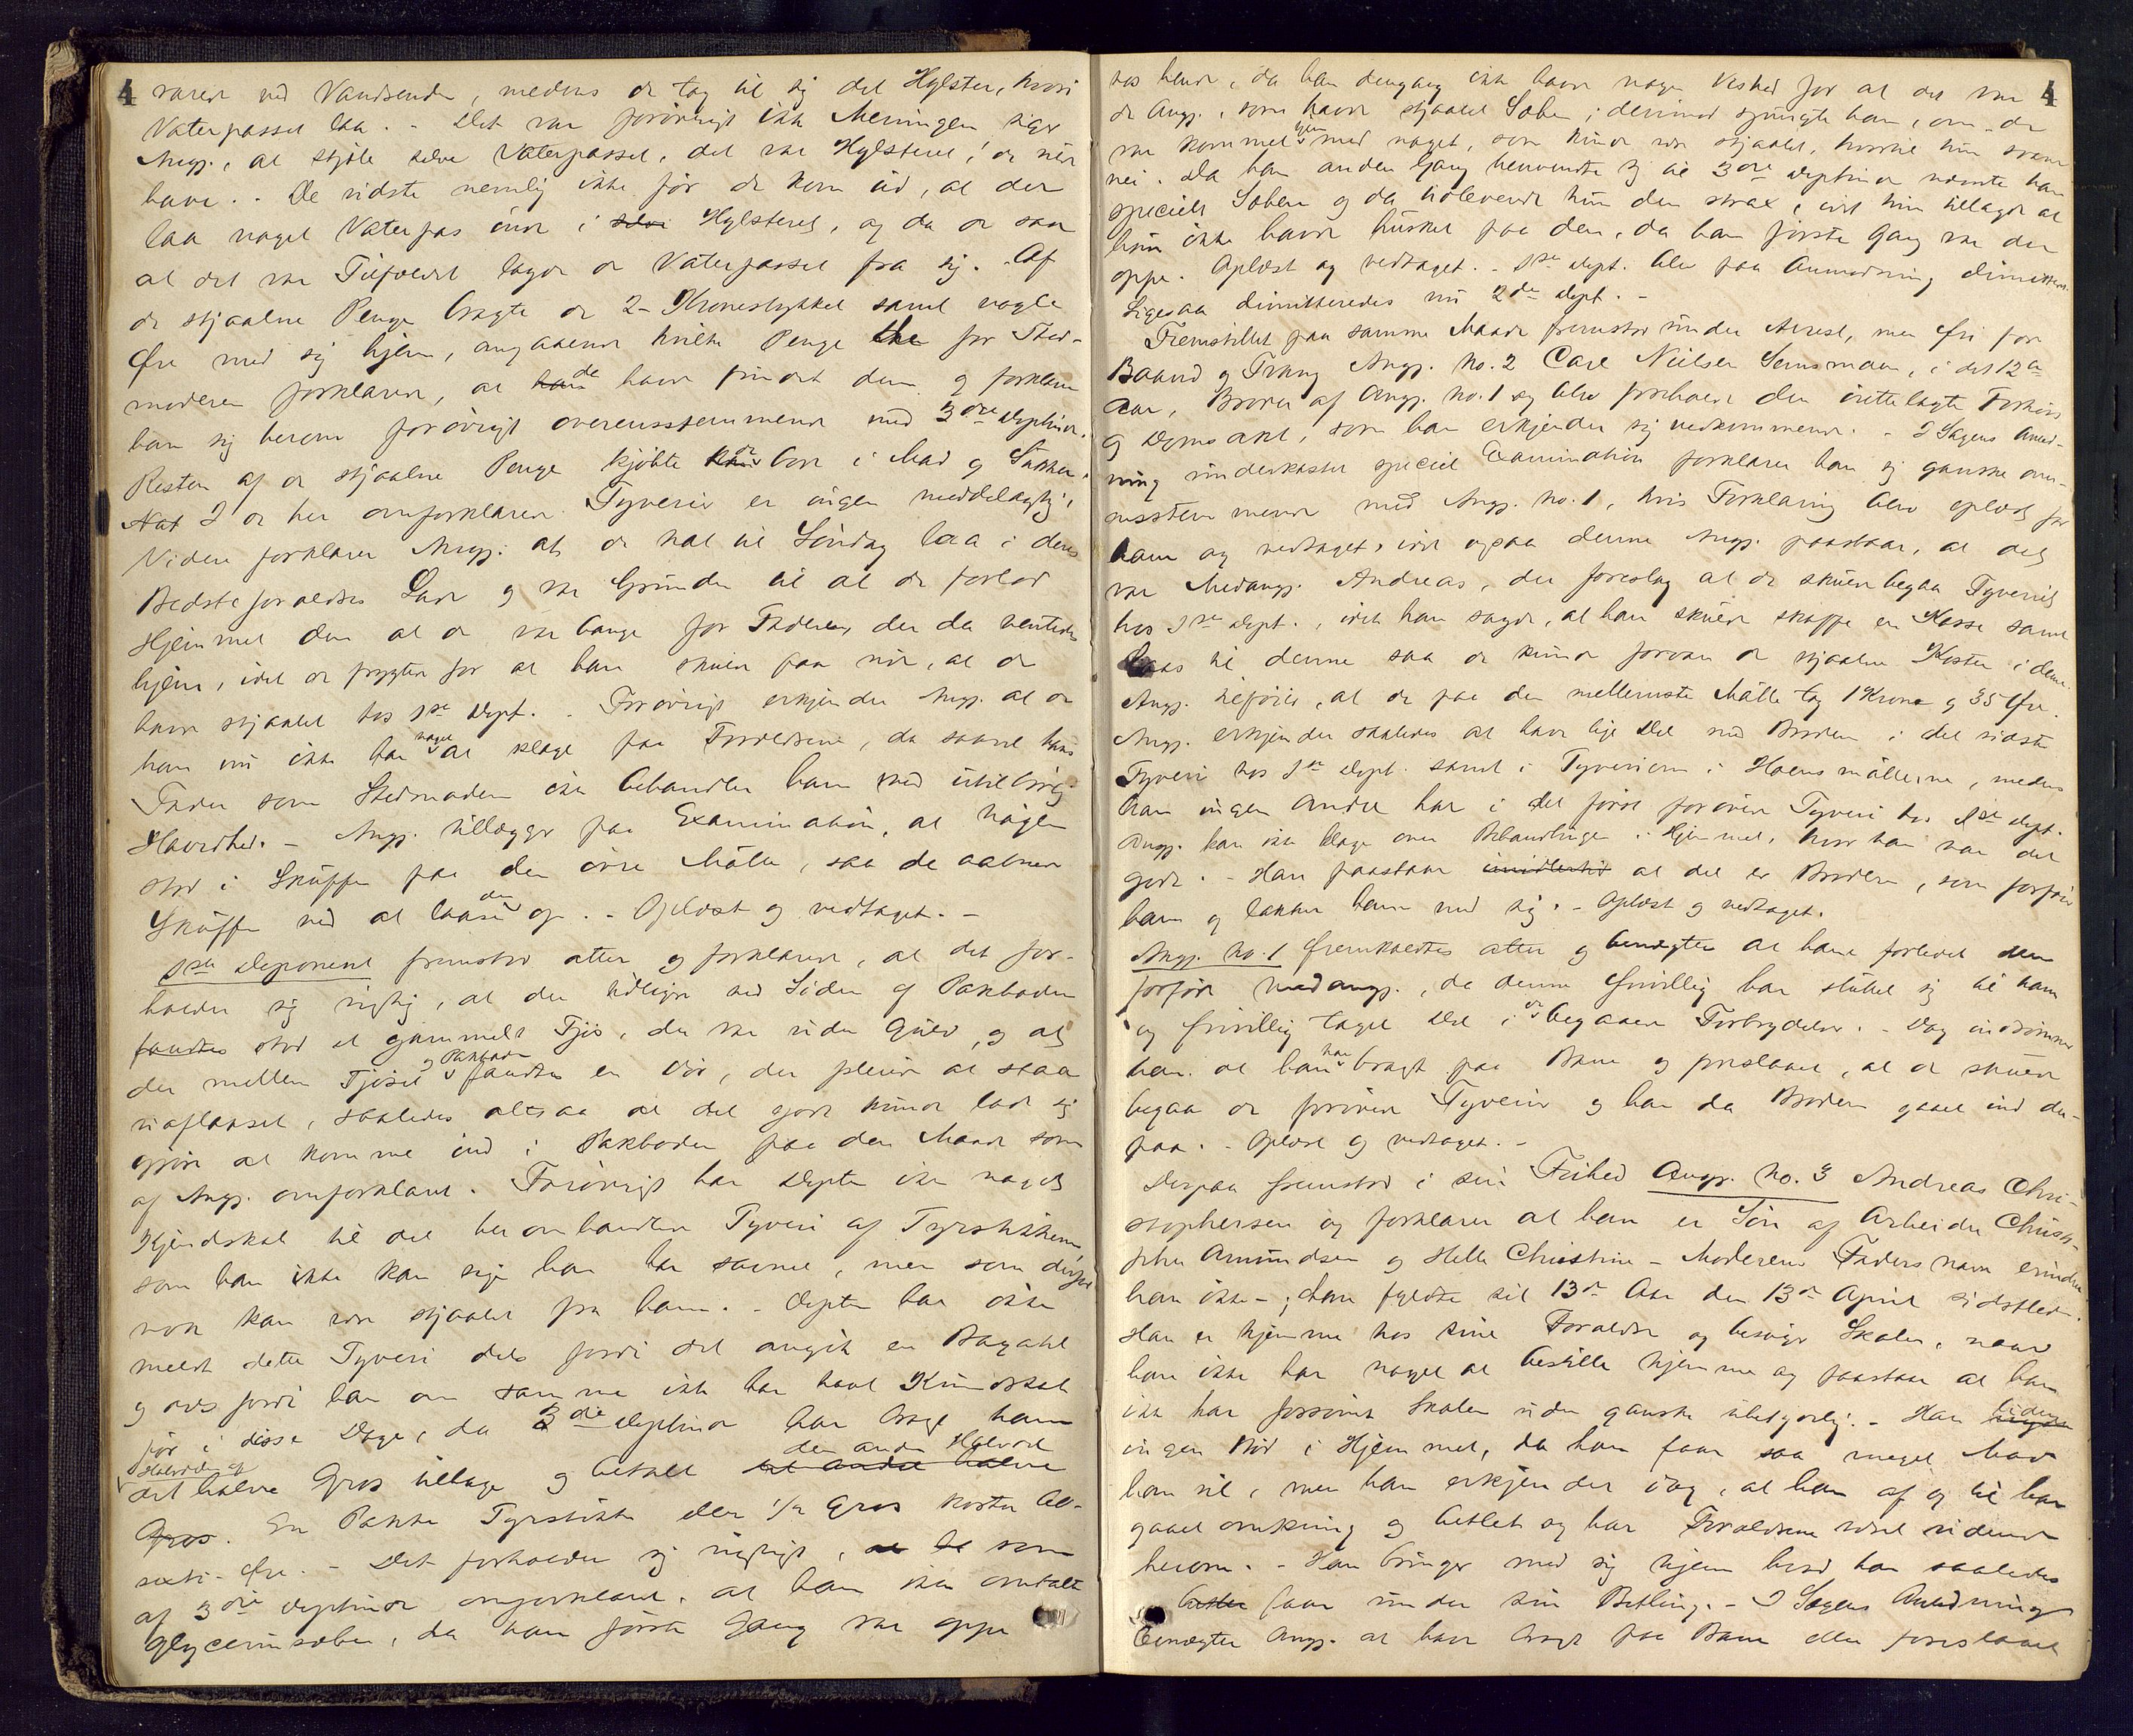 4
varer ved Vandsenden, medens de tog til sig det Hylster, hvori
Vaterpasset laa. - Det var forøvrigt ikke Meningen siger
Angj., at stjæle selve Vaterpasset, det var Hylsteret, de vilde
have. - De vidste nemlig ikke før de kom ud, at der
laa noget Vaterpas inde i selve Hylsteret, og da de saa
at det var Tilfældet lagde de Vaterpasset fra sig. - Af
de stjaalne Penge bragte de 2-Kronestykket samt nogle
Øre med sig hjem, angaaende hvilke Penge for Sted-
moderen forklarede, at de havde fundet dem og forklarer
han sig herom forøvrigt overensstemmende med 3die Deptinde.
Resten af de stjaalne Penge kjøbte de bort i Mad og Sukker.
I de her omforklarede Tyverier er ingen meddelagtig.
Videre forklarer Angj. at de Nat til Søndag laa i deres
Bedsteforældres Lade og var Grunden til at de forlod
Hjemmet den at de var bange for Faderen, der da ventedes
hjem, idet de frygtede for at han skulde faa vide, at de
havde stjaalet hos 1ste Dept. - Forøvrigt erkjender Angj. at
han nu ikke har noget at klage paa Forældrene, da saavel hans
Fader som Stedmoder ikke behandler ham med utilbørlig
Haardhed. - Angj. tillægger paa Examination, at Nøglen
stod i Skuffen paa den øvre Mølle, saa de aabnede
Skuffen ved at laase den op. - Oplæst og vedtaget. -
1ste Deponent fremstod atter og forklarede, at det for-
holder sig rigtig, at der tidligere ved Siden af Pakboden
fandtes stod et gammelt Fjøs, der var uden Gulv, og at
der mellem Fjøset og Pakboden fandtes en Dør, der pleiede at staa
uaflaaset, saaledes altsaa at det godt kunde lade sig
gjøre at komme ind i Pakboden paa den Maade som
af Angj. omforklaret. Forøvrigt har Depten ikke noget
Kjendskab til det her omhandlede Tyveri af Fyrstikkerne,
som han ikke kan sige han har savnet, men som derfor
nok kan være stjaalet fra ham. - Depten har ikke
meldt dette Tyveri dels fordi det angik en Bagatel
og dels fordi han om samme ikke har havt Kundskab
før i disse Dage, da 3die Deptinde har bragt ham
Halvdelen af
det halve Gros tilbage og betalt den anden Halvdel det andet halve
Gros. En Pakke Fyrstikker eller 1/2 Gros koster
Øre. - Det forholder sig rigtigt, som
af 3die Deptinde omforklaret, at han ikke omtalte
Glycerinsæben, da han første Gang var oppe
4
hos hende, da han dengang ikke havde nogen Vished for at det var
de Angj., som havde stjaalet Sæben; derimod spurgte han, om de
var kommet hjem med noget, som kunde være stjaalet, hvortil hun svarede
nei. Da han anden Gang henvendte sig til 3die Deptinde nævnte han
specielt Sæben og da udleverede hun den strax, idet hun tillagde at
hun ikke havde husket paa den, da han første Gang var der
oppe. Oplæst og vedtaget. - 1ste Dept. blev paa Anmodning dimitteret.
Ligesaa dimitteredes nu 2den Dept. -
Fremstillet paa samme Maade fremstod under Arrest, men fri for
Baand og Tvang Angj. No. 2 Carl Nielsen Semsmoen, i det 12te
Aar, Broder af Angj. No. 1 og blev foreholdt den fremlagte Forhørs
og Domsakt, som han erkjender sig vedkommende. - I Sagens Anled-
ning underkastet speciel Examination forklarer han sig ganske over-
ensstemmende med Angj. No. 1, hvis Forklaring blev oplæst for
ham og vedtaget, idet ogsaa denne Angj. paastaar, at det
var Medangj. Andreas, der foreslog at de skulde begaa Tyveriet
hos 1ste Dept., idet han sagde, at han skulde skaffe en Kasse samt
Laas til denne saa de kunde forvare de stjaalne Koster i denne.
Angj. tilføier, at de paa den mellemste Mølle tog 1 Krone og 35 Øre.
Angj. erkjender saaledes at have lige Del med Broderen i det sidste
Tyveri hos 1ste Dept. samt i Tyverierne i møllerne, medens
han ingen Andel har i det først forøvede Tyveri hos 1ste Dept.
Angj. kan ikke klage over Behandlingen i Hjemmet, hvor han har det
godt. - Han paastaar imidlertid at det er Broderen, som forfører
ham og lokker ham med sig. - Oplæst og vedtaget.
Angj. No. 1 fremkaldtes atter og benægtede at have forledet eller
forført Medangj., da denne frivillig har sluttet sig til ham
og frivillig taget Del i de begaaede Forbrydelser. - Dog indrømmer
han at han har bragt paa Bane og foreslaaet, at de skulde
begaa de forøvede Tyverier og har da Broderen gaaet ind der-
paa. - Oplæst og vedtaget. -
Derpaa fremstod i sin Frihed Angj. No. 3 Andreas Chri-
stophersen og forklarer at han er Søn af Arbeider Christo-
pher Amundsen og Helle Christine - Moderens Faders navn erindrer
han ikke -; han fyldte sit 13de Aar den 13de April sidstleden.
Han er hjemme hos sine Forældre og besøger Skolen, naar
han ikke har noget at bestille hjemme og paastaar at han
ikke har forsømt Skolen uden ganske ubetydelig. - Han lider
ingen Nød i Hjemmet, da han faar saa meget Mad
han vil, men han erkjender dog, at han af og til har
gaaet omkring og betlet og har Forældrene været vidende
herom. - Han bringer med sig hjem hvad han saaledes
faar under sin Betling. - I Sagens Anledning
benægter Angj. at have bragt paa Bane eller foreslaaet